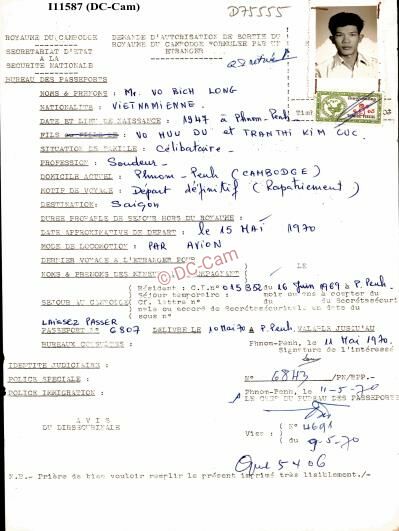 I11587 (DC-Cam)
D75555
ROYAUME DU CAMBODGE
DEMANDE D'AUTORISATION DE SORTIE DU
ROYAUME DU CAMBODGE FORMULEE PAR UN
ETRANGER
SECRETARIAT D'ETAT
A LA
SECURITE NATIONALE
BUREAU DES PASSEPORTS
NOMS & PRENOMS : Mr. VO BICH LONG
NATIONALITE : VIETNAMIENNE.
DATE ET LIEU DE NAISSANCE : 1947 à Phnom-Penh
FILS VO HUU DU et TRAN THI KIM CUC.
SITUATION DE FAMILLE : Célibataire.
PROFESSION : Soudeur
DOMICILE ACTUEL : Phnom-Penh (CAMBODGE)
MOTIF DE VOYAGE : Départ définitif (Rapatriement)
DESTINATION : Saigon
DUREE PROBABLE DE SEJOUR HORS DU ROYAUME :
DATE APPROXIMATIVE DE DEPART : le 15 MAI 1970
MODE DE LOCOMOTION : PAR AVION
DERNIER VOYAGE A L'ETRANGER POUR LE
NOMS & PRENOMS DES MINEURS ACCOMPAGNANT
© DC-Cam
Résident : C.I. N° 015352 du 16 Juin 1969 à P. Penh.
Séjour temporaire : mois à compter du
SEJOUR AU CAMBODGE Cf. lettre n° du du
en date du
sous n°
LAISSEZ PASSER
PASSEPORT N° 6807 DELIVRE LE 10 MAI 70 à P. Penh. VALABLE JUSQU'AU
BUREAUX CONSULTES : Phnom-Penh, le 11 Mai 1970.
Signature de l'intéressé
IDENTITE JUDICIAIRE :
POLICE SPECIALE :
N° 6843 /PN/BPP.-
POLICE IMMIGRATION :
Phnom-Penh, le 11-5-70
LE CHEF DU BUREAU DES PASSEPORTS
AVIS
DU
Visa :
N° 4691
du 9-5-70
5406
N.B.- Prière de bien vouloir remplir le présent imprimé très lisiblement./-